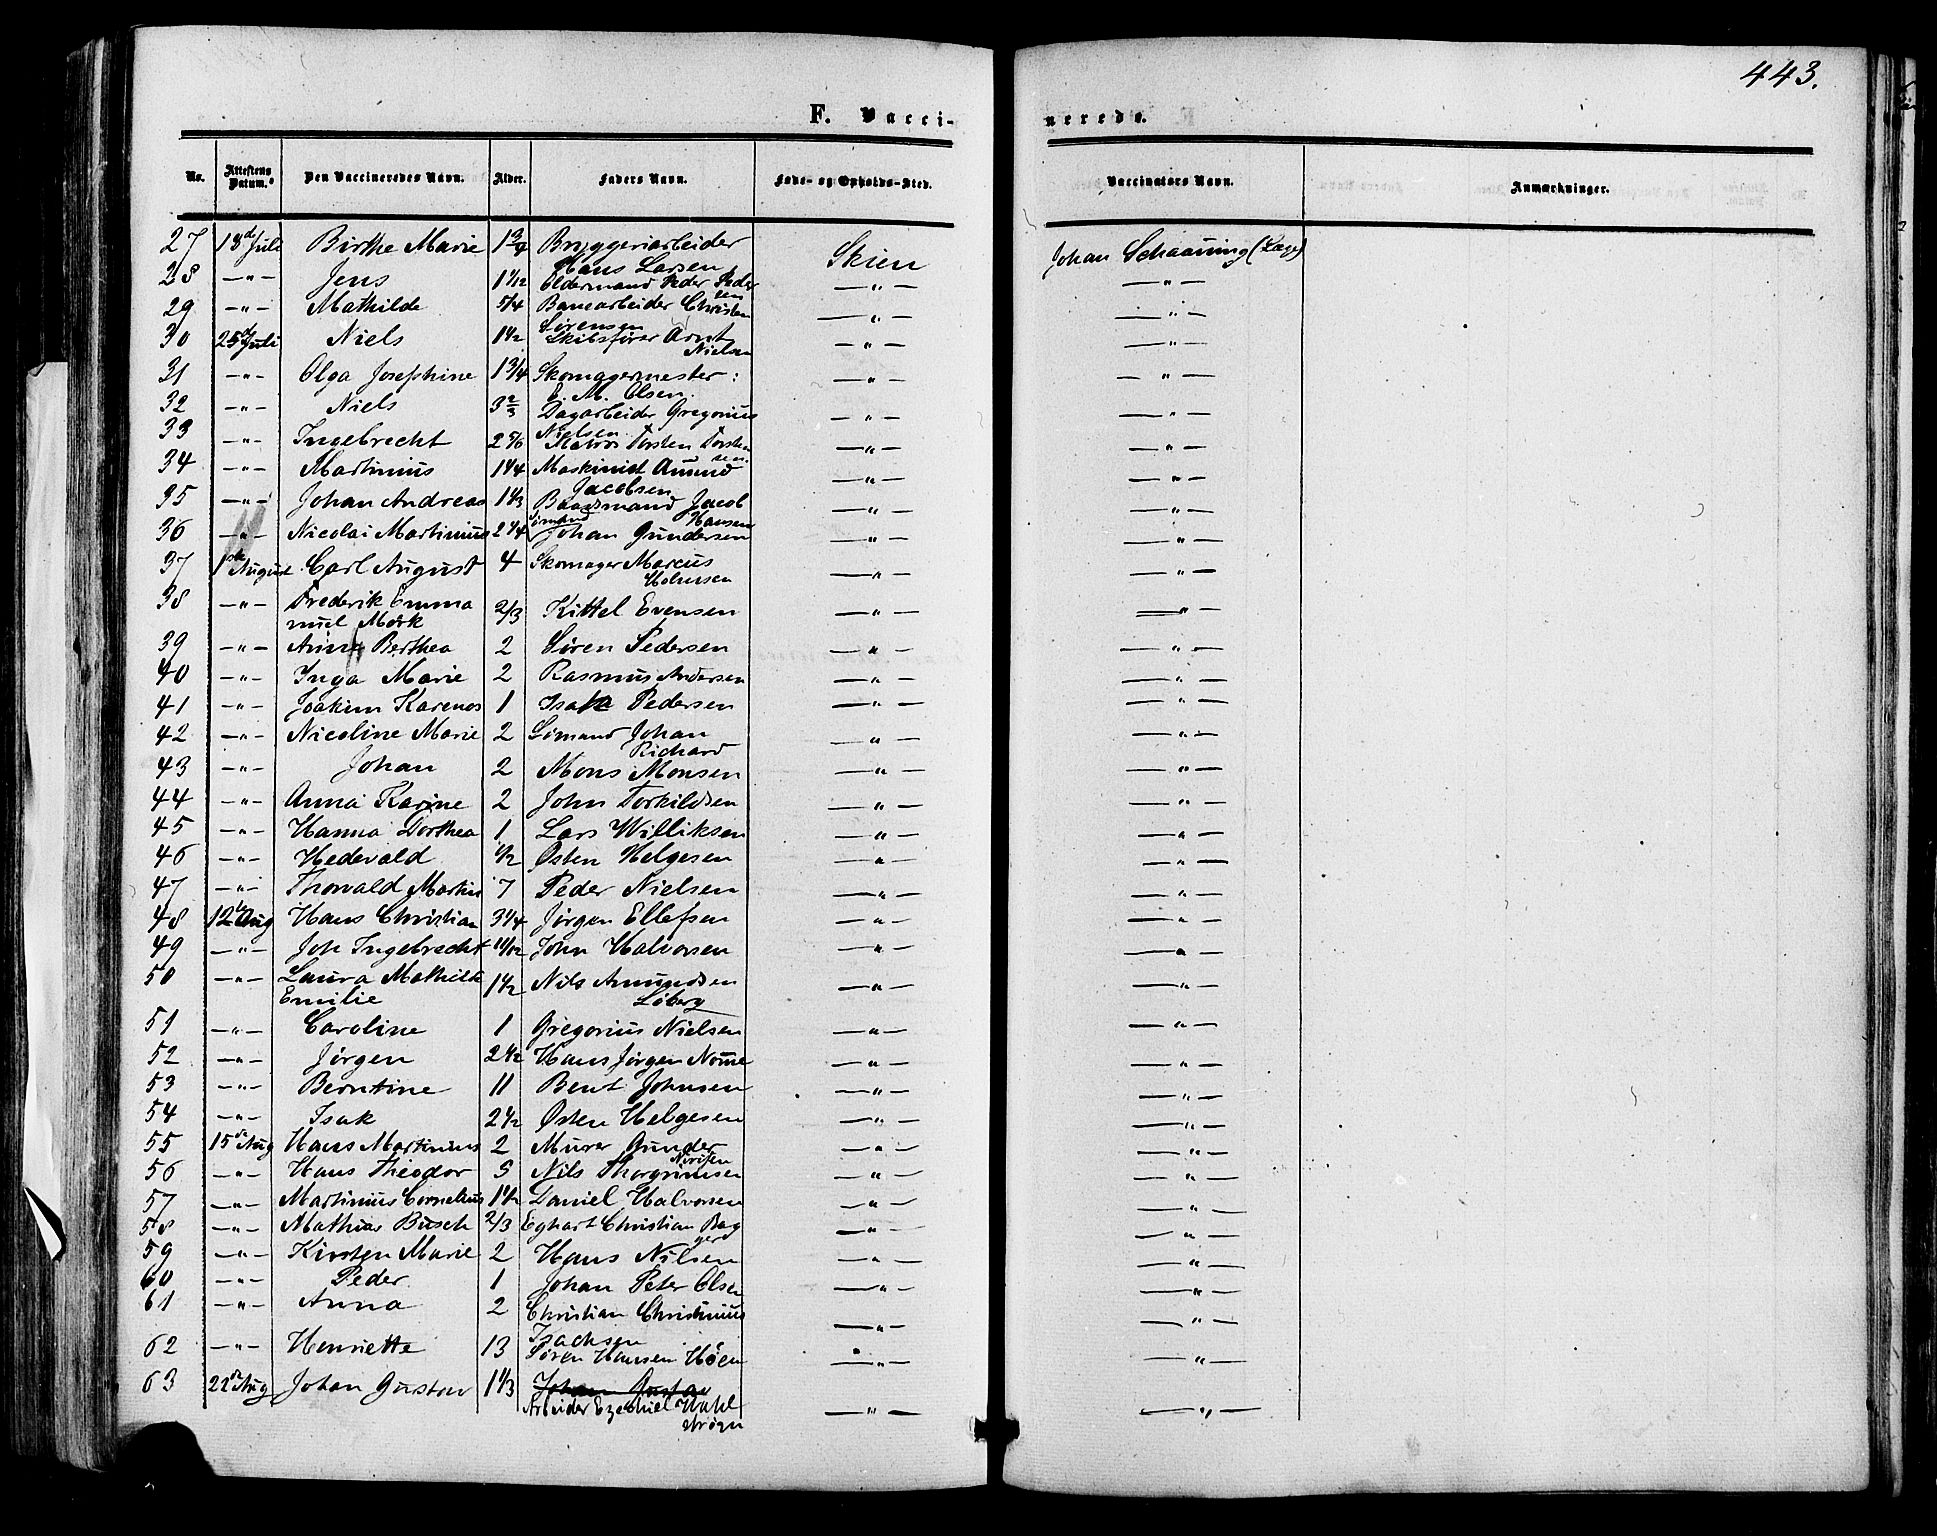 443.
F. Vacci-
nerede.
No. Attestens Datum. Den Vaccineredes Navn. Alder. Faders Navn. Føde- og Opholds-Sted. Vaccinators Navn. Anmærkninger.
27 18de Juli Birthe Marie 1 3/4 Bryggeriarbeider Hans Larsen Skien Johan Schaanning (Læge)
28 —"— Jens 1 1/12 Oldermand Peder Pedersen —"— —"—
29 —"— Mathilde 5/4 Banearbeider Christen Sørensen —"— —"—
30 25de Juli Niels 1 1/2 Skibsfører Arnt Nielsen —"— —"—
31 —"— Olga Josephine 1 3/4 Skomagermester: E. M. Olsen. —"— —"—
32 —"— Niels 3 2/3 Dagarbeider Gregorius Nielsen —"— —"—
33 —"— Ingebrecht 2 5/6 Matros Torsten Torstensen. —"— —"—
34 —"— Martinius 1 1/4 Maskinist Amund Jacobsen —"— —"—
35 —"— Johan Andreas 1 1/3 Baadsmand Jacob Hansen —"— —"—
36 —"— Nicolai Martinius 2 1/4 Sømand Johan Gundersen —"— —"—
37 1ste August Carl August 4 Skomager Marcus —"— —"—
38 —"— Frederik Emmanuel Mørk 2/3 Kittel Evensen —"— —"—
39 —"— Anne Berthea 2 Søren Pedersen —"— —"—
40 —"— Inga Marie 2 Rasmus Andersen —"— —"—
41 —"— Joakim Karenos 1 Isak Pedersen —"— —"—
42 —"— Nicoline Marie 2 Sømand Johan Richard —"— —"—
43 —"— Johan 2 Mons Monsen —"— —"—
44 —"— Anna Karine 2 John Torkildsen —"— —"—
45 —"— Hanna Dorthea 1 Lars Williksen —"— —"—
46 —"— Hedevald 1/2 Østen Helgesen —"— —"—
47 —"— Thorvald Martin 7 Peder Nielsen —"— —"—
48 12te Aug Hans Christian 3 1/4 Jørgen Ellefsen —"— —"—
49 —"— Joh Ingebrecht 11/12 John Halvorsen —"— —"—
50 —"— Laura Mathilde Emilie 1 1/2 Nils Amundsen Løberg —"— —"—
51 —"— Caroline 1 Gregorius Nielsen —"— —"—
52 —"— Jørgen 2 1/2 Hans Jørgen Nome —"— —"—
53 —"— Berntine 11 Bent Johnsen —"— —"—
54 —"— Isak 2 1/2 Østen Helgesen —"— —"—
55 15de Aug Hans Martinius 2 Murer Gunder —"— —"—
56 —"— Hans Theodor 5 Nils Thorgrimsen —"— —"—
57 —"— Martinius Cornelius 1 1/2 Daniel Halvorsen —"— —"—
58 —"— Mathias Busch 2/3 Eghart Christian Baggerd —"— —"—
59 —"— Kirsten Marie 2 Hans Nilsen —"— —"—
60 —"— Peder 1 Johan Peter Olsen —"— —"—
61 —"— Anna 2 Christian Christinius Isachsen —"— —"—
62 —"— Henriette 13 Søren Hansen Høen —"— —"—
63 22de Aug Johan Gustav 1 1/3 Johan Gustav Arbeider Ezechiel Wahlstrøm —"— —"—